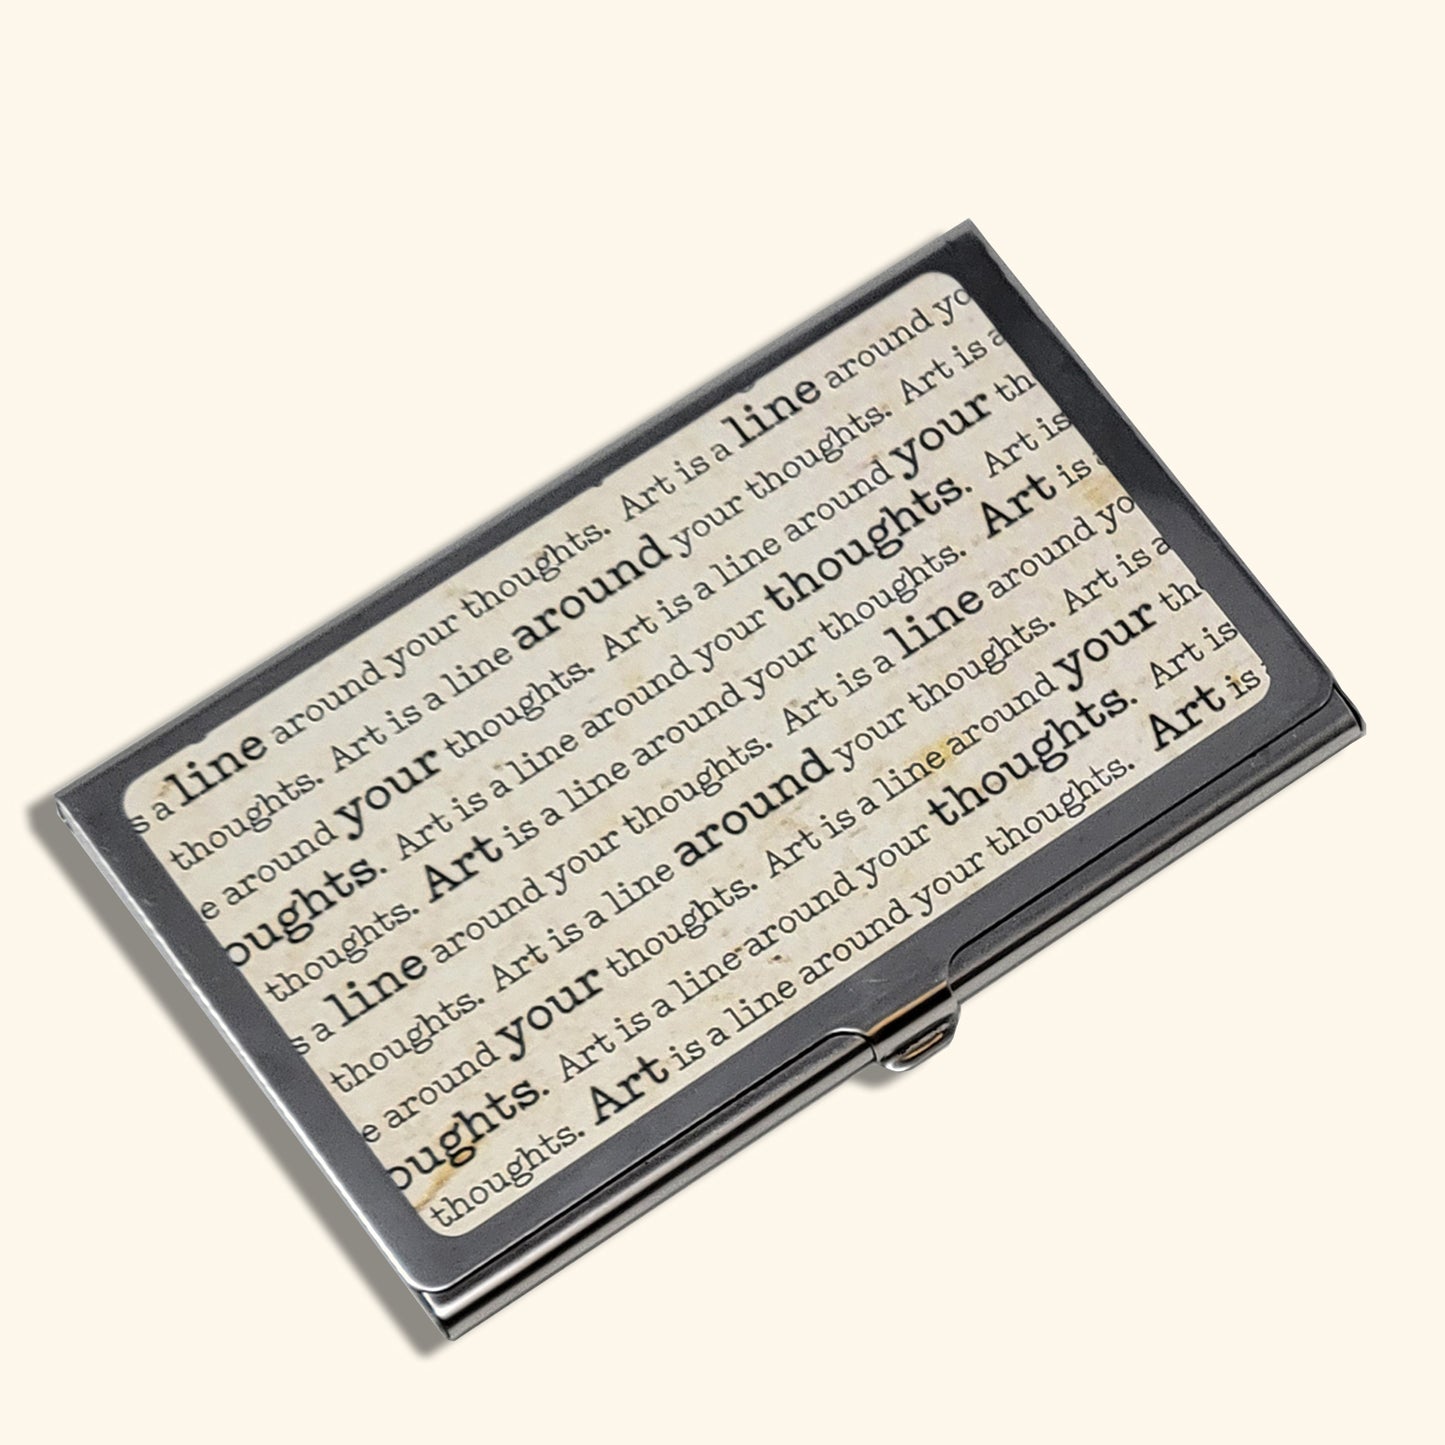 s a line around your thoughts. Art is a line around yo
thoughts. Art is a line around your thoughts. Art is a
e around your thoughts. Art is a line around your th
oughts. Art is a line around your thoughts. Art is
thoughts. Art is a line around your thoughts. Art is a
s a line around your thoughts. Art is a line around yo
thoughts. Art is a line around your thoughts. Art is a
e around your thoughts. Art is a line around your th
oughts. Art is a line around your thoughts. Art is
thoughts. Art is a line around your thoughts. Art is